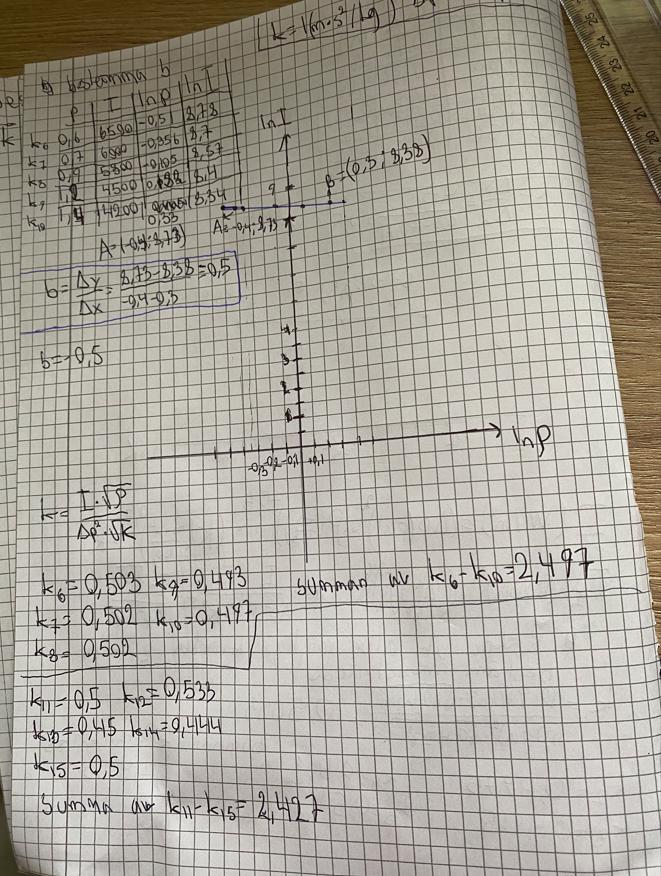 [k = 1(m·s²/kg)
b) bestämma b
ρ | I | lnρ | lnI
k6 0,6 6500 -0,51 8,78
k7 0,7 6000 -0,356 8,7
k8 0,9 5300 -0,105 8,57
k9 1,2 4500 0,182 8,4
k10 1,4 4200 0,33 8,34
A=(-0,4;8,73)
b = Δy/Δx = 8,73-8,38/-0,4-0,3 = 0,5
b=-0,5
lnI
9
B=(0,3;8,38)
A=-0,4;8,73
4
3
2
1
-0,3 -0,2 -0,1 +0,1
lnρ
k = I·√ρ/Δp²·√K
k6=0,503 k9=0,493
k7=0,502 k10=0,497
k8=0,502
summan av k6-k10=2,497
k11=0,5 k12=0,533
k13=0,45 k14=0,444
k15=0,5
Summa av k11-k15=2,427
25 24 23 22 21